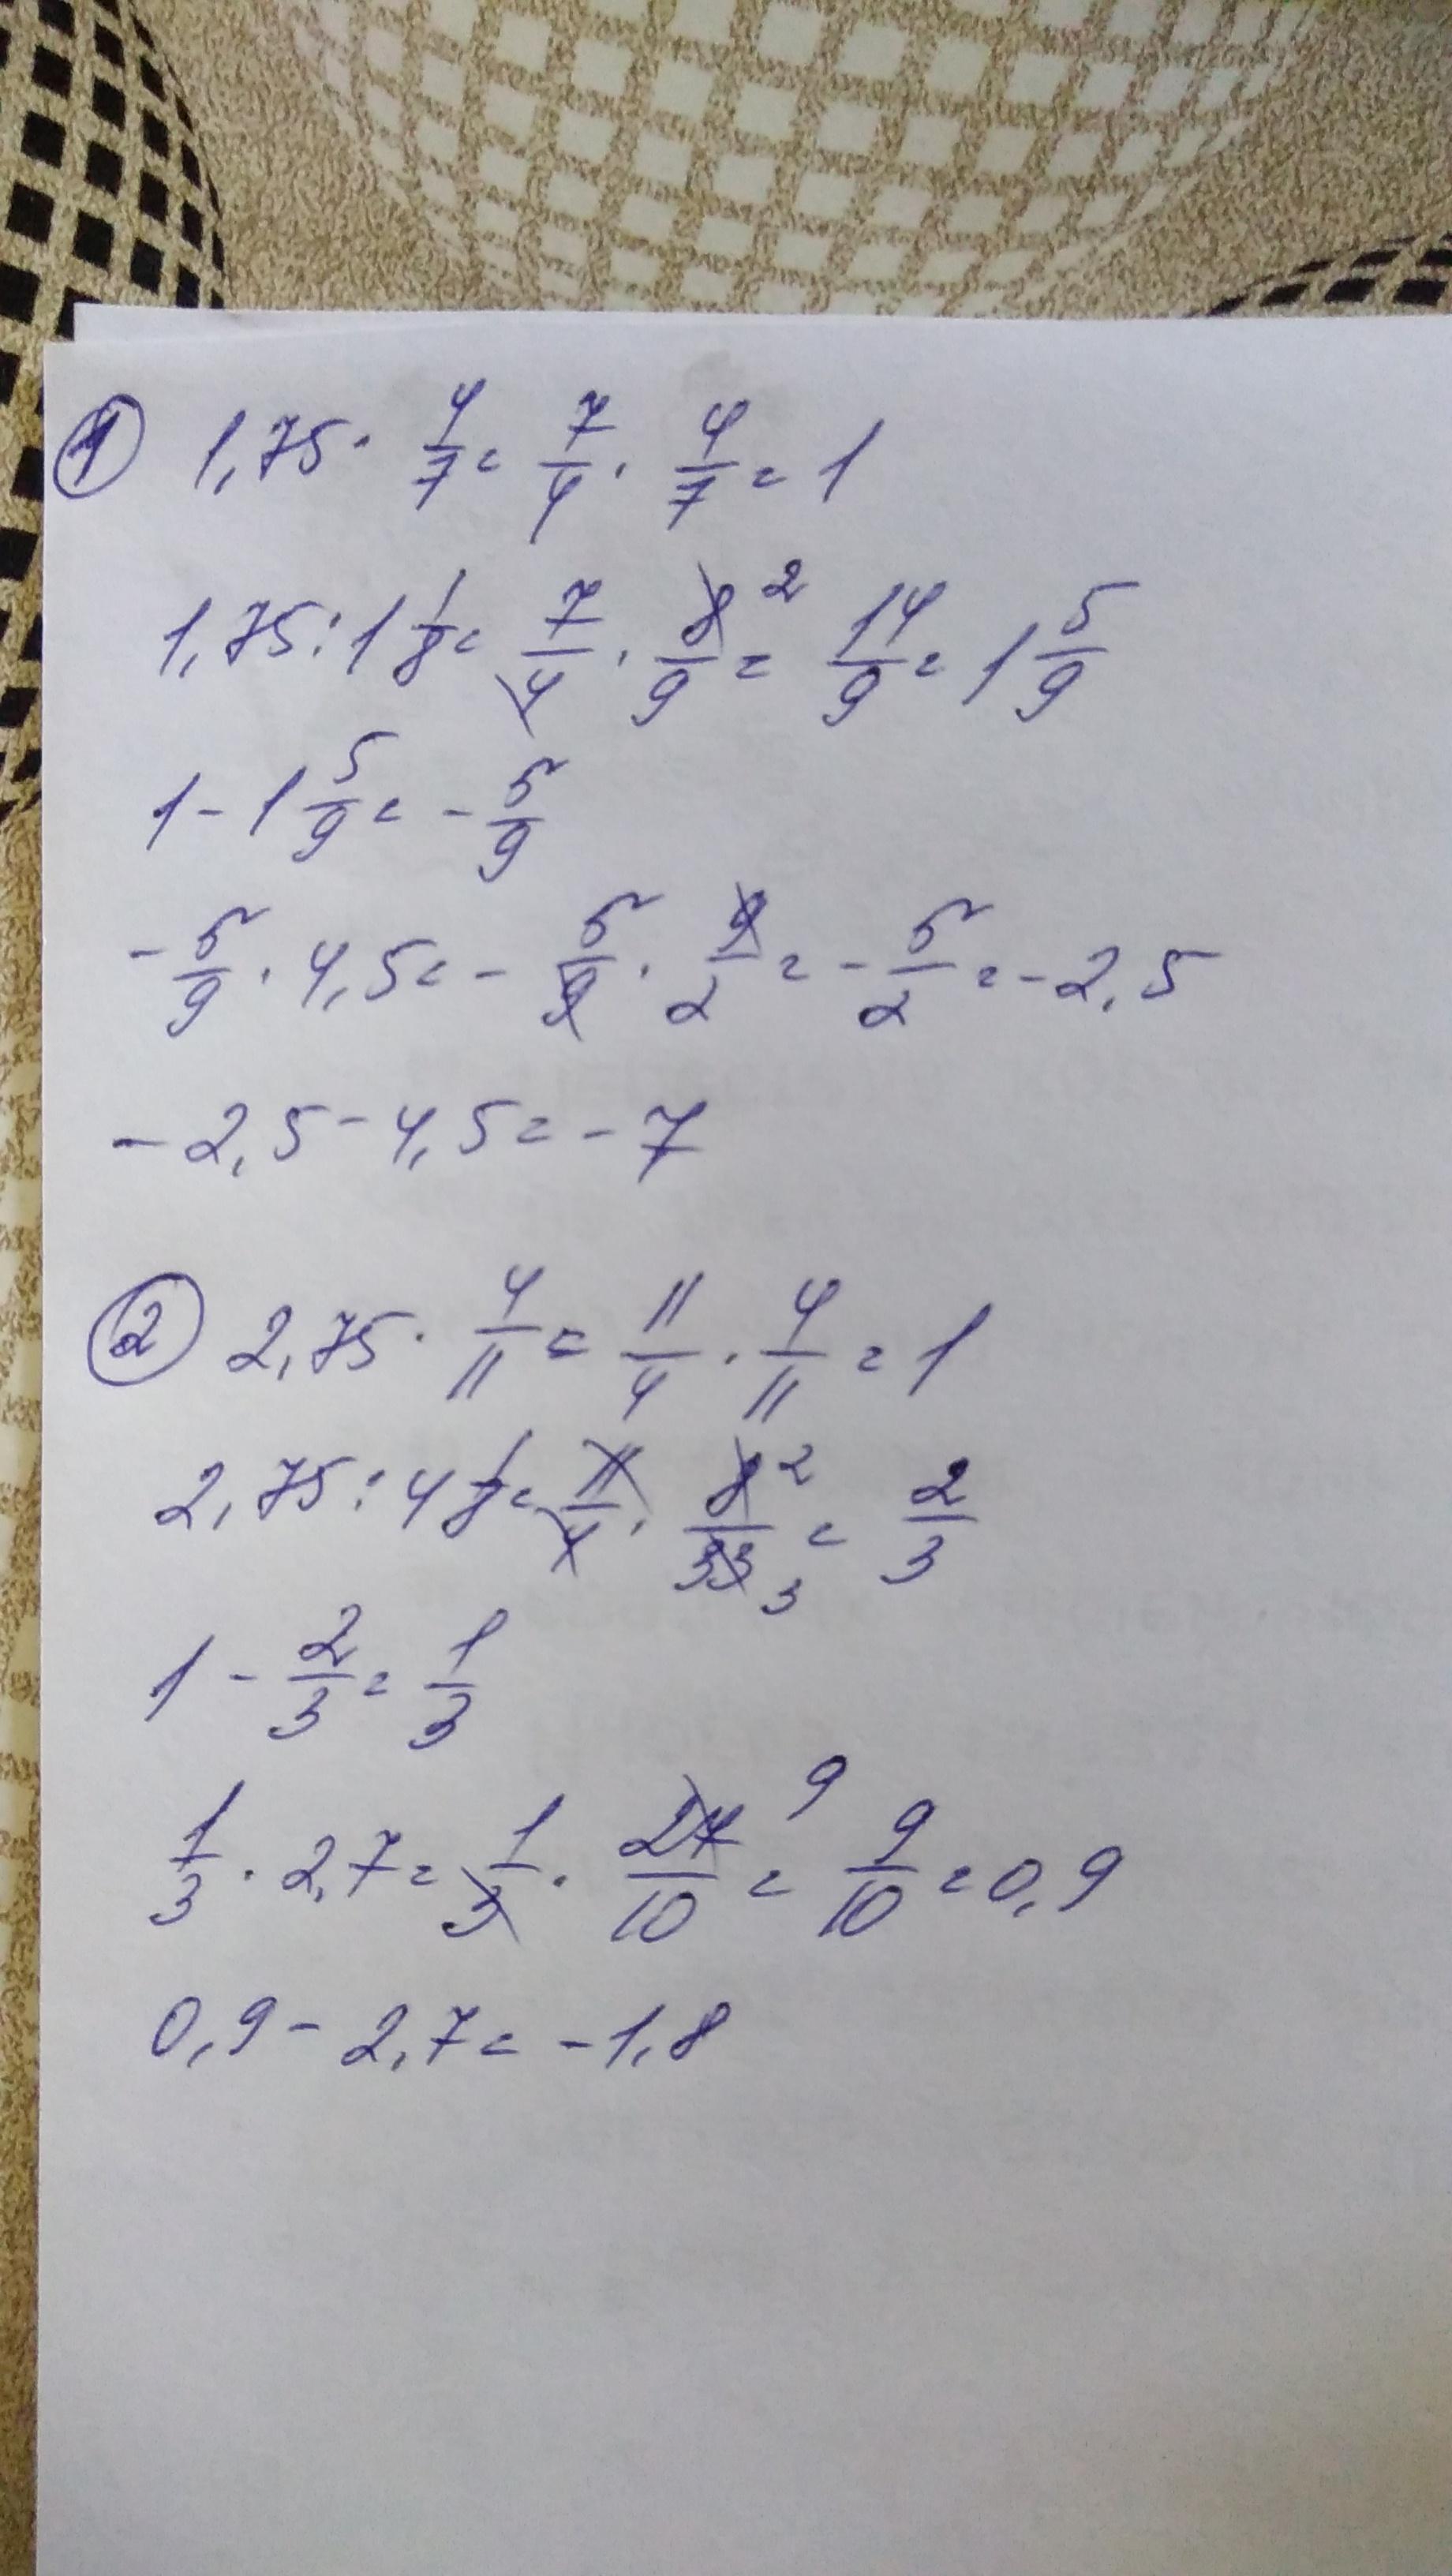 ① 1,75 · 4/7 = 7/4 · 4/7 = 1
1,75 : 1 1/8 = 7/4 · 8/9 2 = 14/9 = 1 5/9
1 - 1 5/9 = - 5/9
- 5/9 · 4,5 = - 5/9 · 9/2 = - 5/2 = - 2,5
- 2,5 - 4,5 = - 7
② 2,75 · 4/11 = 11/4 · 4/11 = 1
2,75 : 4 1/8 = 11/4 · 8 2/33 3 = 2/3
1 - 2/3 = 1/3
1/3 · 2,7 = 1/3 · 27 9/10 = 9/10 = 0,9
0,9 - 2,7 = - 1,8